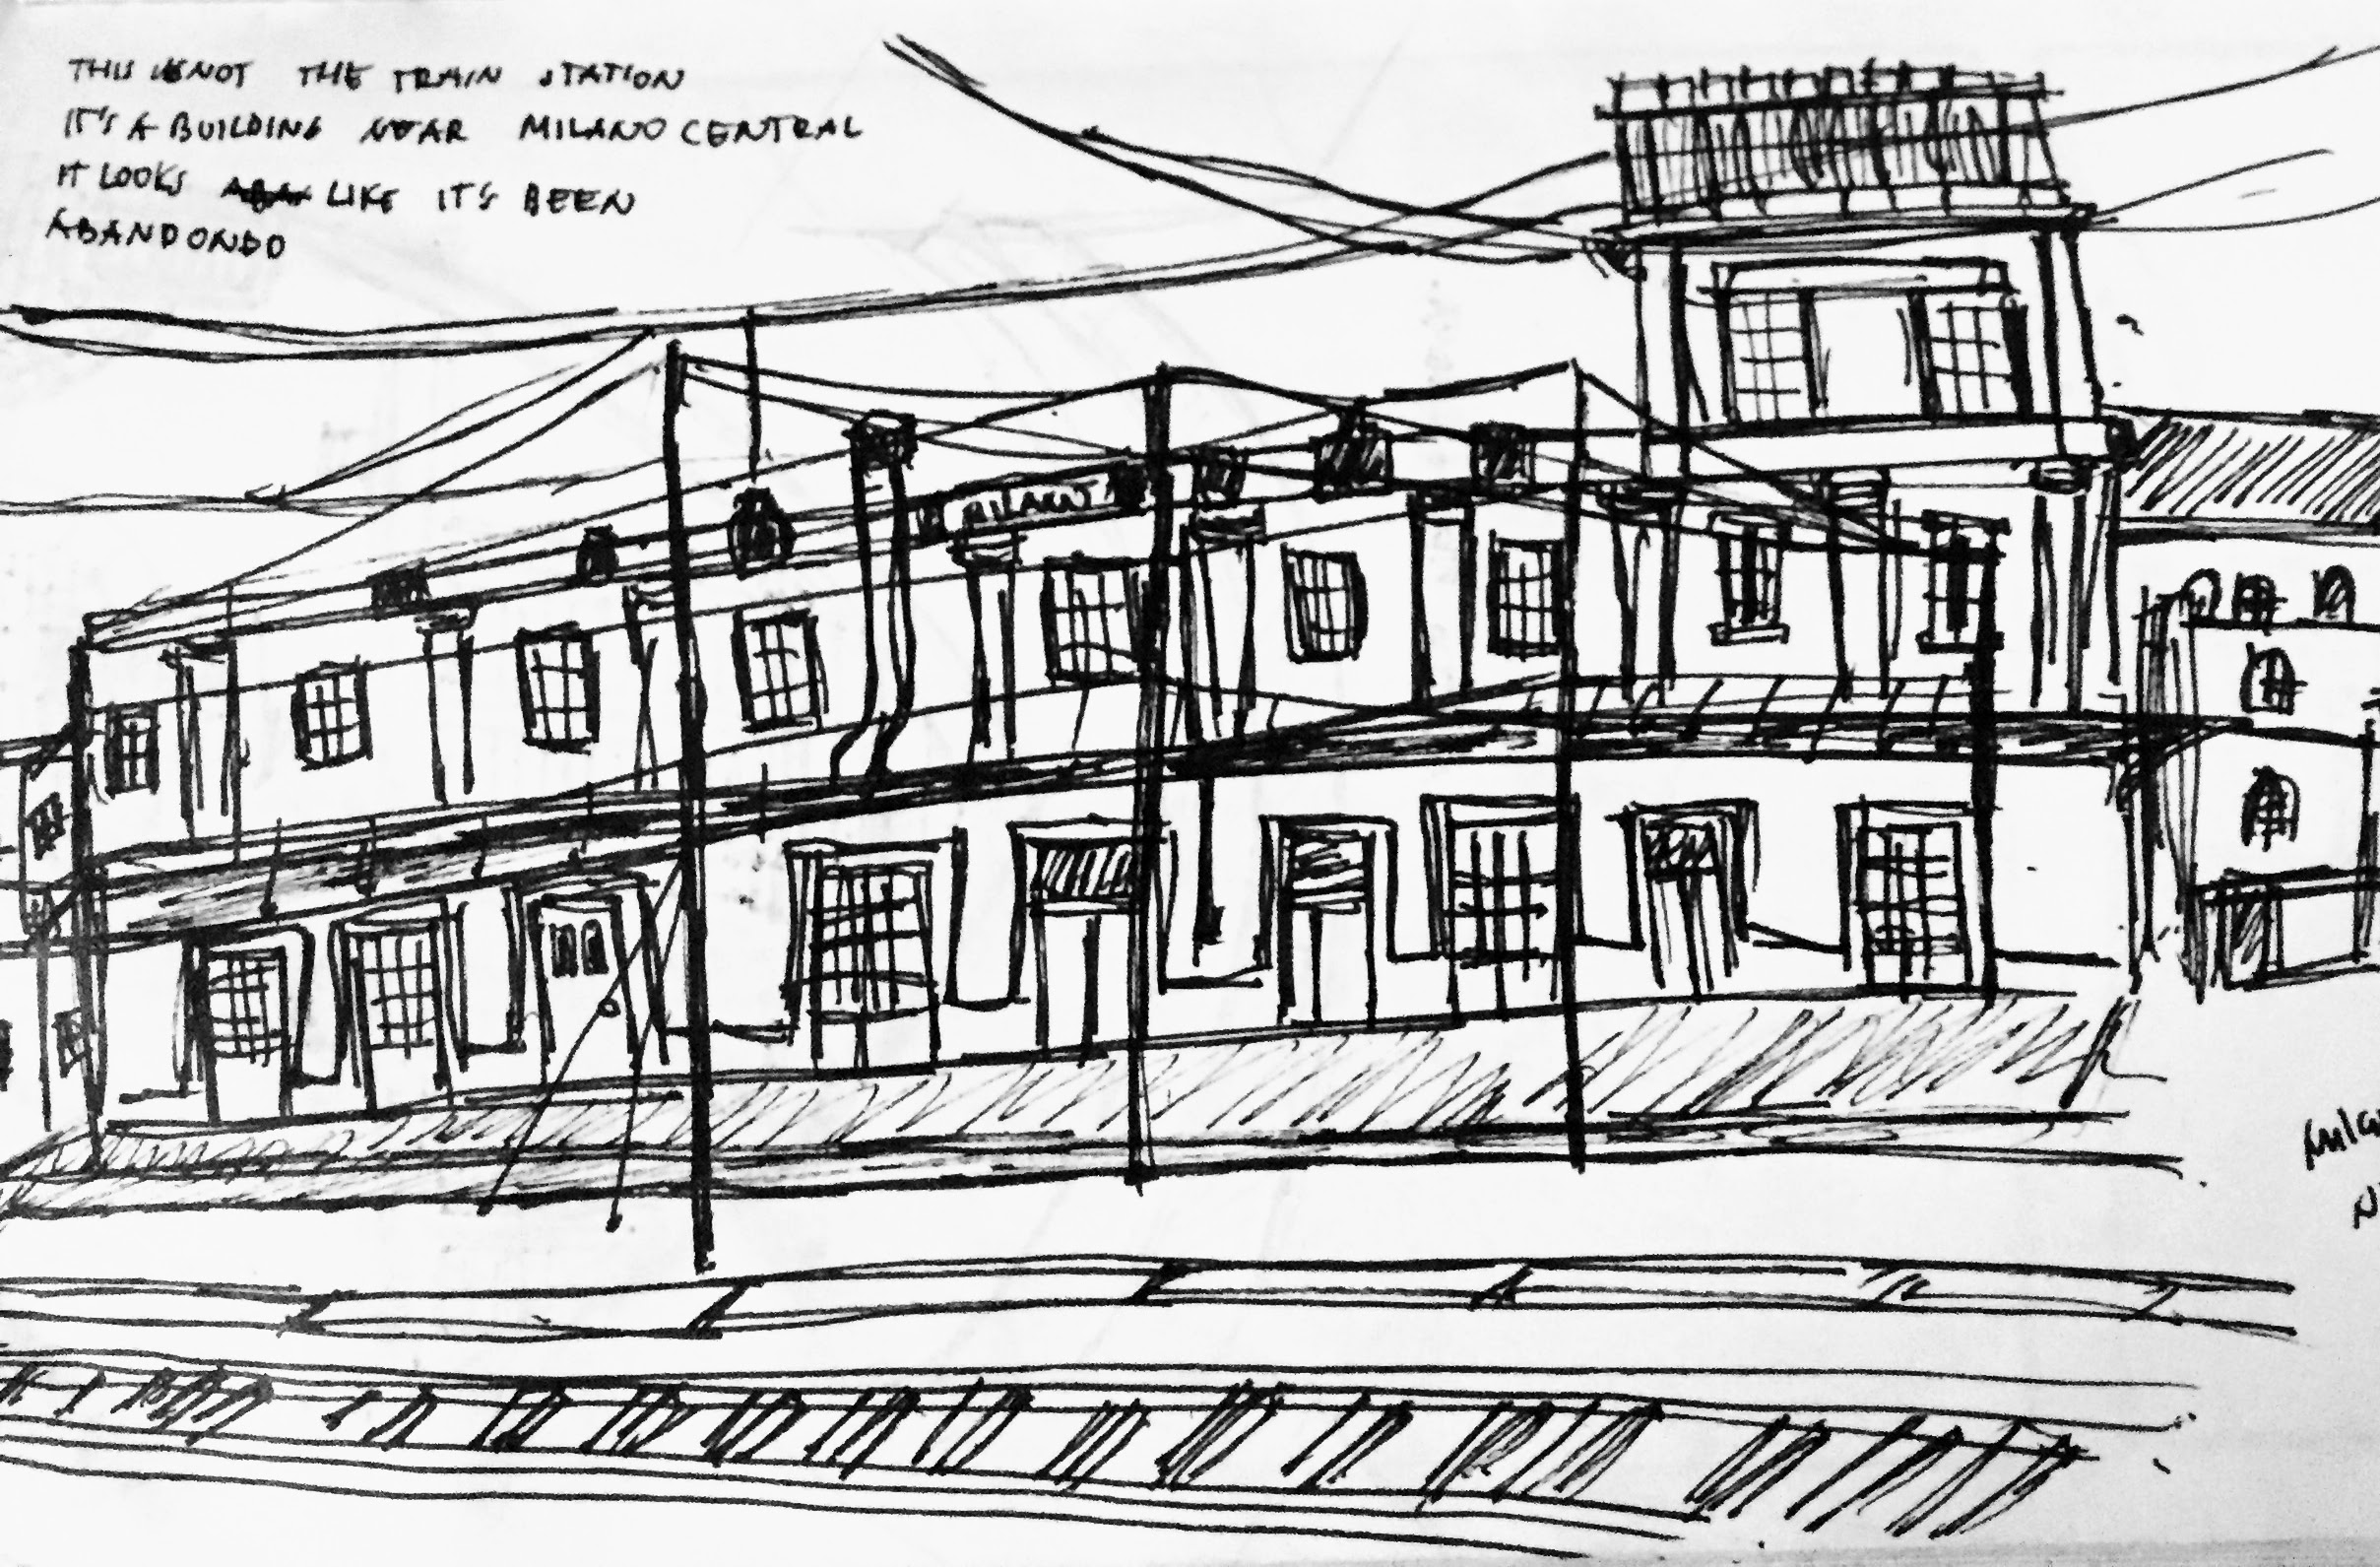 THIS IS NOT THE TRAIN STATION
IT'S A BUILDING NEAR MILANO CENTRAL
IT LOOKS LIKE IT'S BEEN
ABANDONDO